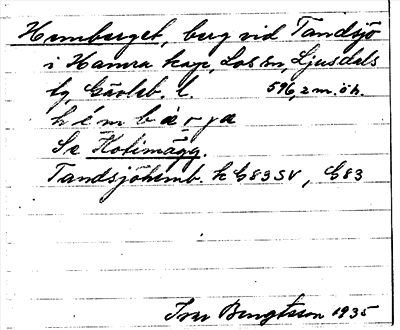 Hemberget, berg vid Tandsjö
i Hamra kap, Los sn, Ljusdals
tg, Gävleb. l. 596,2 m. öh.
hémbárja
Se Kotimägg.
Tandsjöhemb. k G83SV, G83
Ivar Bengtsson 1935